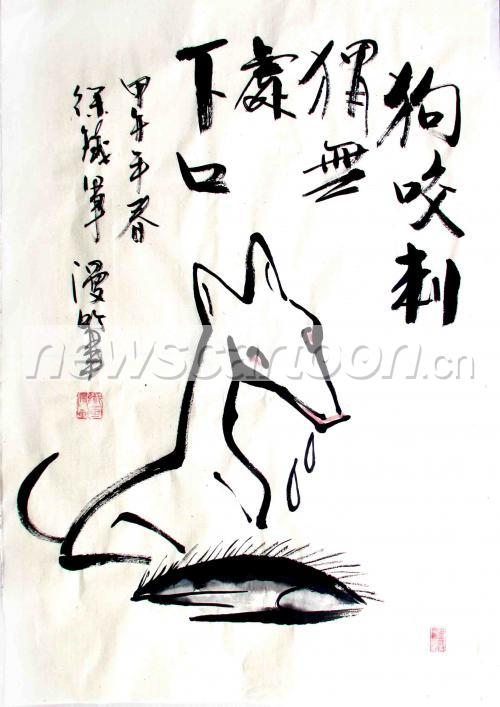 狗咬刺
猬無
處
下口
甲午年春
徐鐵軍
漫吟畫
newscartoon.cn